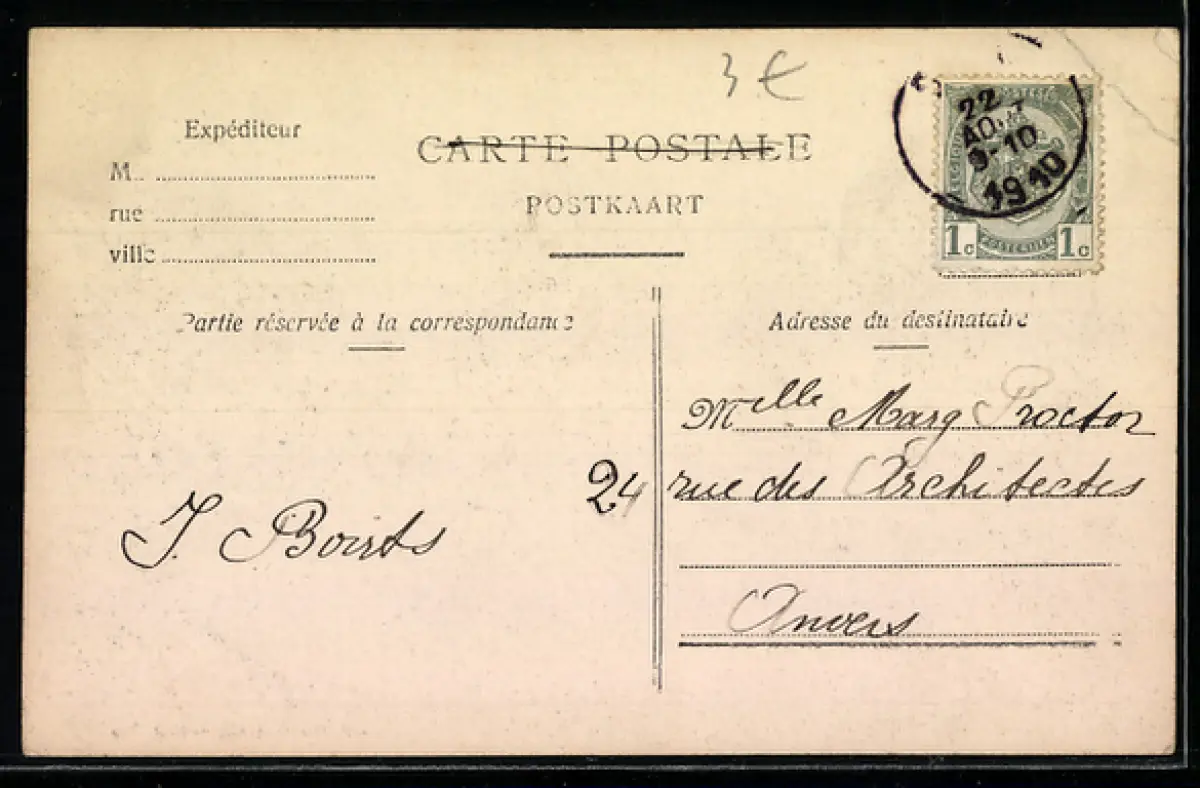 3 €
Expéditeur
M.
rue
ville
CARTE POSTALE
POSTKAART
22
AOUT
9-10
1910
1c 1c
Partie réservée à la correspondance
Adresse du destinataire
Melle Marg Proctor
24 rue des Architectes
Anvers
J. Boirts